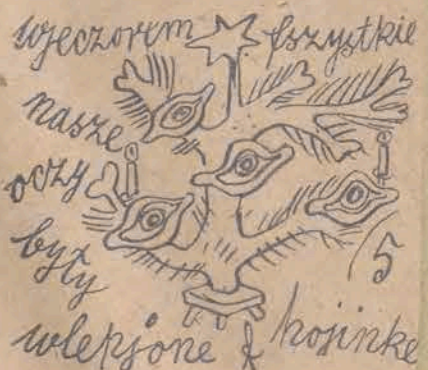 wjeczorem fszystkie
nasze
oczy
były
5
wlepjone f hojinke